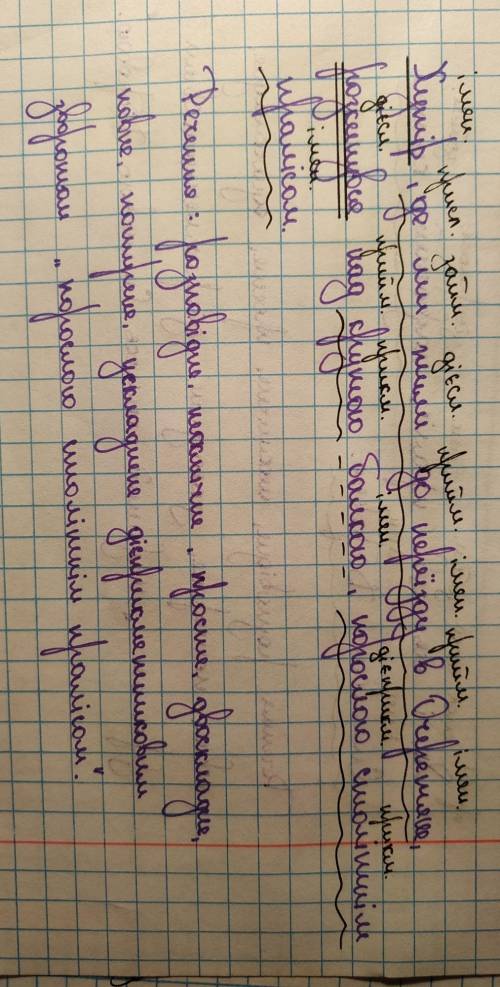 імен. присл. займ. дієсл. прийм. імен. прийм. імен.
Хутір, де ми жили до переїзду в Очеретяне,
дієсл. прийм. прикм. імен. дієприкм. прикм.
розкинувся над крутою балкою, порослою столітнім
імен.
пралісом.
Речення: розповідне, неокличне, просте, двоскладне,
повне, поширене, ускладнене дієприкметниковим
зворотом „порослою столітнім пралісом".